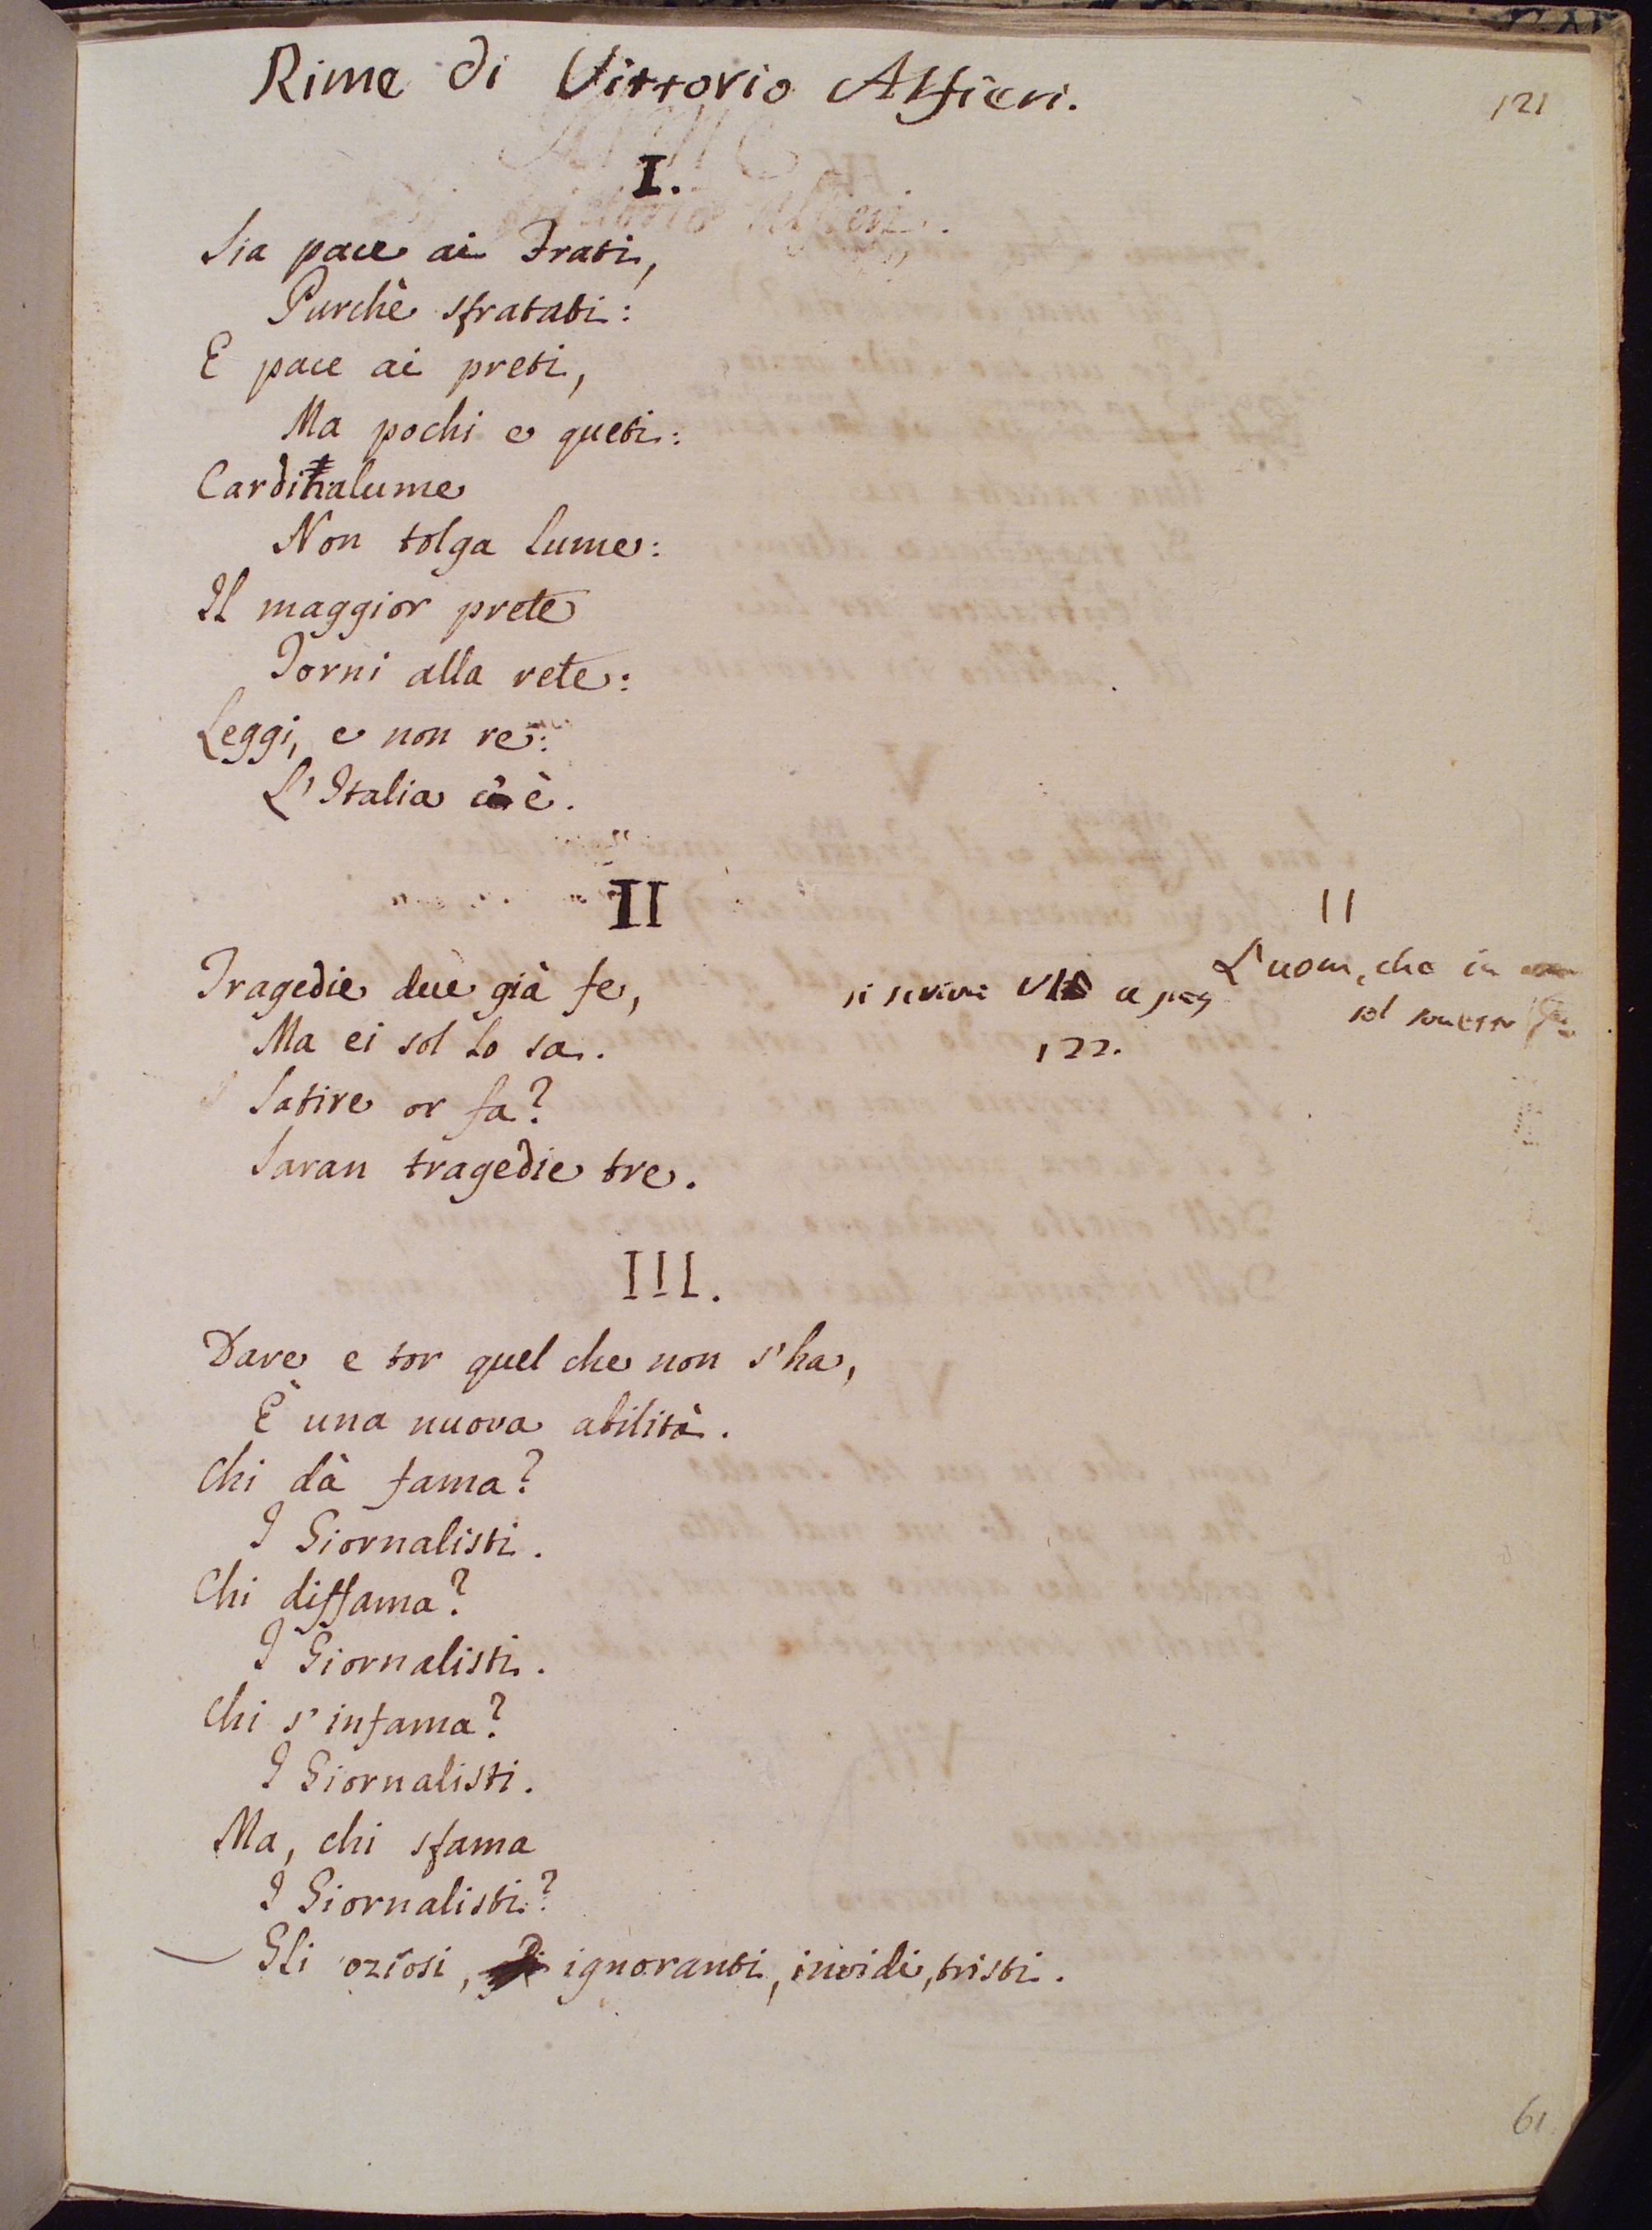 Rime di Vittorio Alfieri.
121
I.
Sia pace ai Frati,
Purchè sfratati:
E pace ai preti,
Ma pochi e queti:
Cardinalume
Non tolga lume:
Il maggior prete
Torni alla rete:
Leggi, e non re:
L'Italia c'è.
II
Tragedie due già fe,
Ma ei sol lo sa.
Satire or fa?
Saran tragedie tre.
si scrivi VII a pag
122.
II
L'uom, che in
sol sonetto
III.
Dare e tor quel che non s'ha,
È una nuova abilità.
Chi dà fama?
I Giornalisti.
Chi diffama?
I Giornalisti.
Chi s'infama?
I Giornalisti.
Ma, chi sfama
I Giornalisti?
Gli oziosi, ignoranti, invidi, tristi.
61